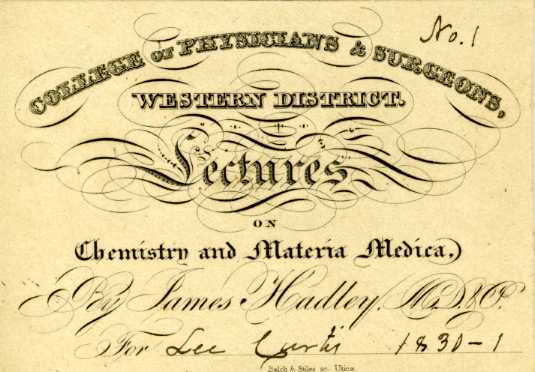 No. 1
COLLEGE OF PHYSICIANS & SURGEONS,
WESTERN DISTRICT.
Lectures
ON
Chemistry and Materia Medica,
By James Hadley, M.D. & P.
For Lee Curtis 1830-1
Balch & Stiles sc. Utica